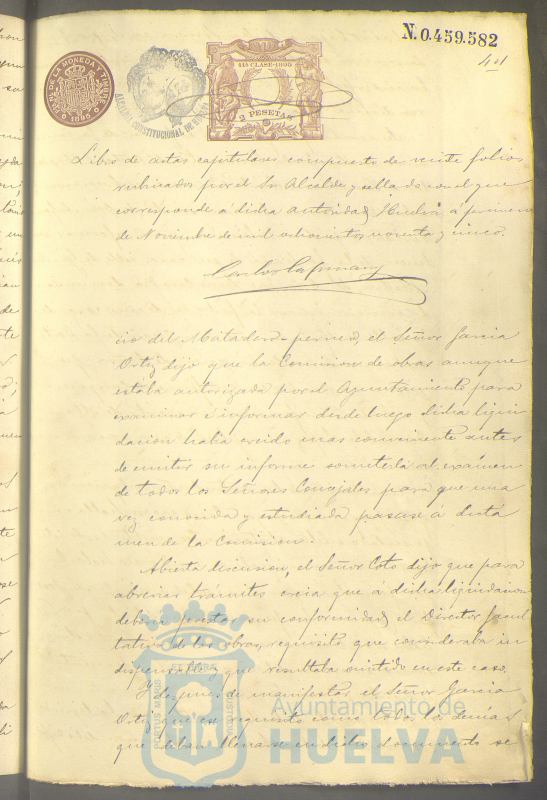 N. 0.459.582
41
FCA. DE LA MONEDA Y TIMBRE
1895
ALCALDIA CONSTITUCIONAL DE HUELVA
11ª CLASE-1895
2 PESETAS
Libro de actas capitulares compuesto de veinte folios
rubricados por el Sr. Alcalde y sellado con el que
corresponde á dicha autoridad Huelva á primero
de Noviembre de mil ochocientos noventa y cinco.
cio del Matadero-perneo, el Señor Garcia
Ortiz dijo que la Comision de obras aunque
estaba autorizada por el Ayuntamiento para
examinar é informar desde luego dicha liqui
dacion habia creido mas conveniente antes
de emitir su informe someterla al exámen
de todos los Señores Concejales para que una
vez conocida y estudiada pasase á dictá
men de la Comision.
Abierta discusion, el Señor Coto dijo que para
abreviar trámites creia que á dicha liquidacion
deberia prestar su conformidad el Director facul
tativo de las obras, requisito que consideraba in
dispensable y que resultaba omitido en este caso.
Y despues de manifestar el Señor Garcia
Ortiz que ese requisito como todos los demás
que deban llenarse en dicho documento se
PORTUS MARIS
ET TERRÆ
CUSTODIA
Ayuntamiento de
HUELVA